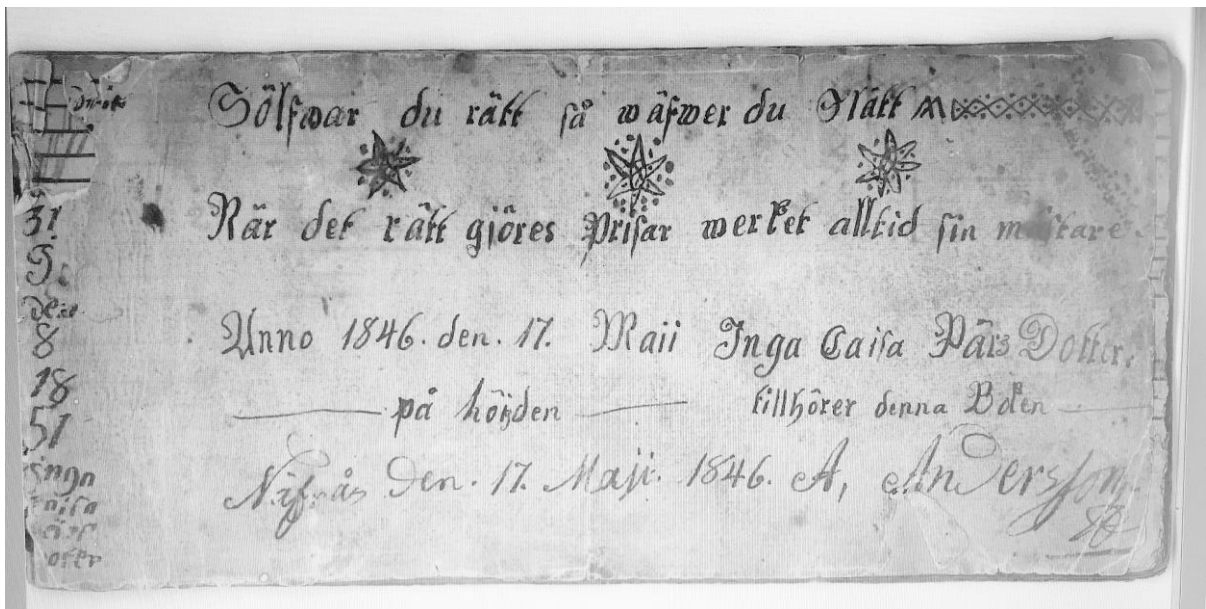 Sölfwar du rätt så wäfwer du Slätt
När det rätt gjöres Prisar werket alltid sin mästare.
Anno 1846. den. 17. Maii Inga Caisa Pärs Dotter.
på höÿden tillhörer denna Boken
den. 17. Maji. 1846. A, Andersson.
31
S.
8
18
51
Inga
Caisa